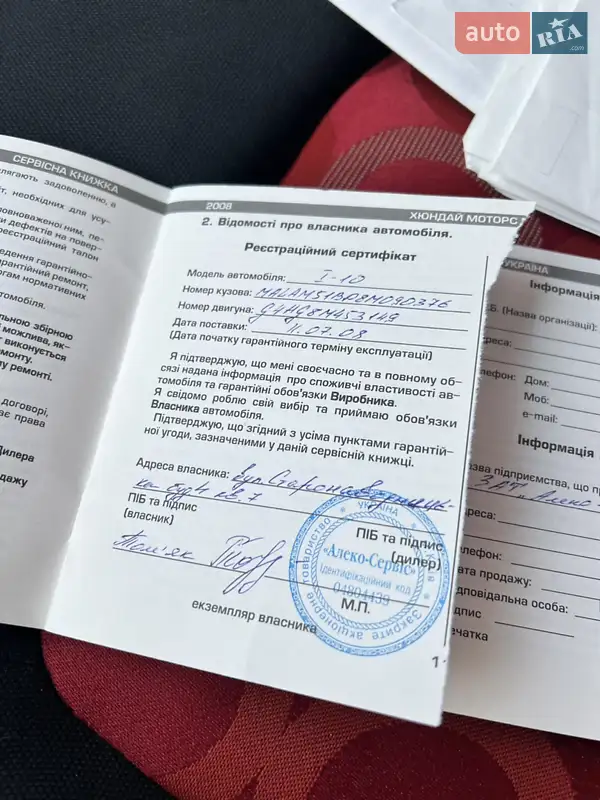 auto RIA .com
СЕРВІСНА КНИЖКА
лягають задоволенню, а
необхідних для усу-
повноваженої ним, пе-
и дефекти на повер-
реєстраційний талон
ведення гарантійно-
арантійний ремонт,
огам нормативних
альною збірною
можлива, як-
виконується
ремонту.
лу ремонті.
договорі,
ає права
Дилера
одажу
2008 ХЮНДАЙ МОТОРС УКРАЇНА
2. Відомості про власника автомобіля.
Реєстраційний сертифікат
Модель автомобіля: I-10
Номер кузова: MALAM51BP8M090376
Номер двигуна: G4HG8M453149
Дата поставки: 11.07.08
(Дата початку гарантійного терміну експлуатації)
Я підтверджую, що мені своєчасно та в повному об-
сязі надана інформація про споживчі властивості ав-
томобіля та гарантійні обов'язки Виробника.
Я свідомо роблю свій вибір та приймаю обов'язки
Власника автомобіля.
Підтверджую, що згідний з усіма пунктами гарантій-
ної угоди, зазначеними у даній сервісній книжці.
Адреса власника: вул
кв. 7
ПІБ та підпис
(власник)
ПІБ та підпис
(дилер)
УКРАЇНА
«Алеко-Сервіс»
Ідентифікаційний код
04804439
Закрите акціонерне товариство
М.П.
екземпляр власника
1-
Інформація
.Б. (Назва організації):
дреса:
елефон: Дом:
Моб:
e-mail:
Інформація
азва підприємства, що пр
ЗАТ „Алеко-
дреса:
елефон:
ата продажу:
ідповідальна особа:
ідпис
ечатка